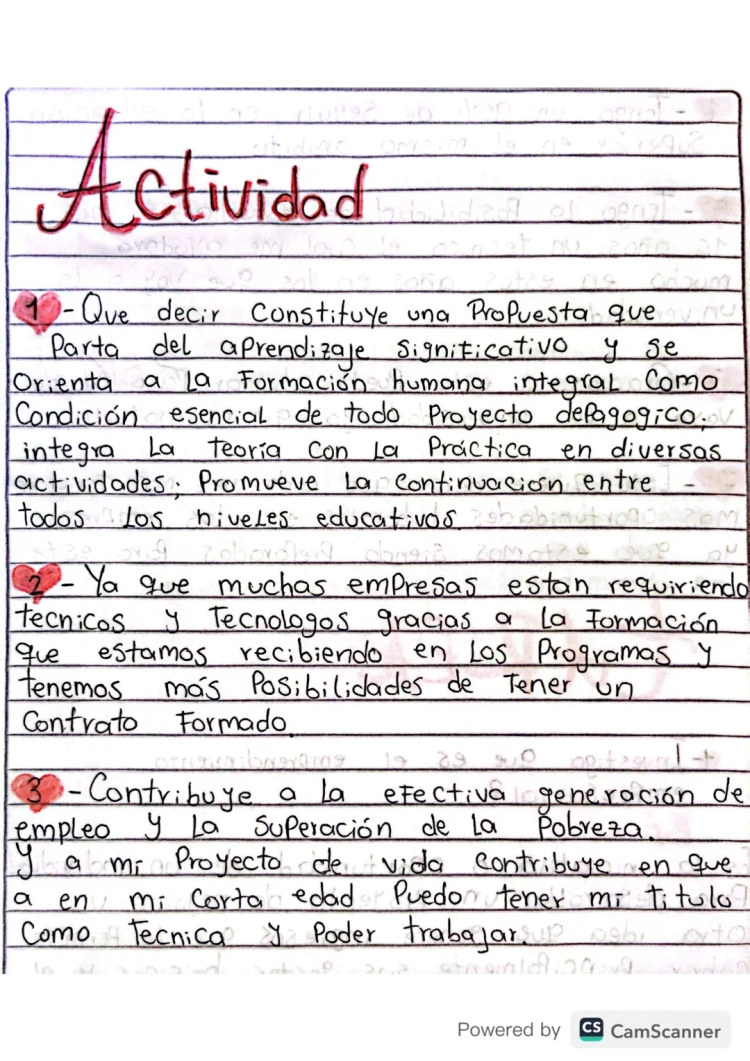 Actividad
1 - Que decir constituye una Propuesta que
Parta del aprendizaje significativo y se
Orienta a la Formación humana integral como
Condición esencial de todo Proyecto depagogico;
integra la teoría con la Práctica en diversas
actividades; Promueve la continuación entre -
todos los niveles educativos.
2 - Ya que muchas empresas estan requiriendo
tecnicos y Tecnologos gracias a la Formación
que estamos recibiendo en los Programas y
tenemos más Posibilidades de tener un
Contrato Formado.
3 - Contribuye a la efectiva generación de
empleo y la superación de la Pobreza.
y a mi Proyecto de vida contribuye en que
a en mi corta edad Puedo tener mi titulo
Como tecnica y Poder trabajar.
Powered by CS CamScanner